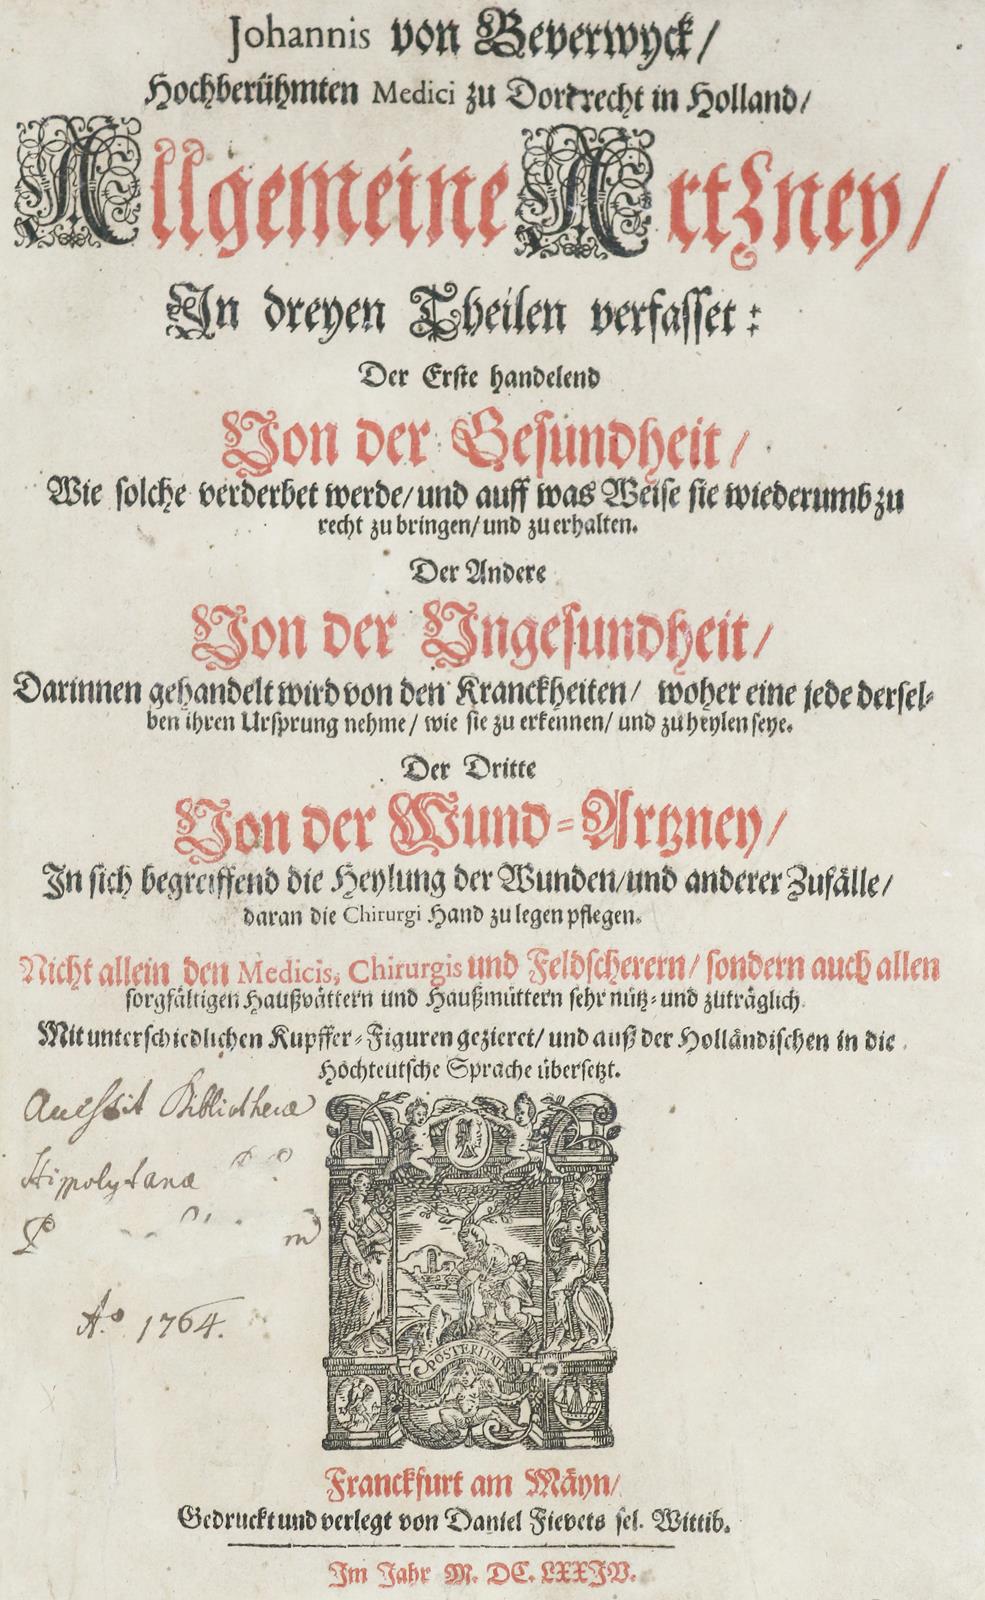 Johannis von Beverwyck/
Hochberühmten Medici zu Dordrecht in Holland/
Allgemeine Artzney/
In dreyen Theilen verfasset:
Der Erste handelend
Von der Gesundheit/
Wie solche verderbet werde/ und auff was Weise sie wiederumb zu
recht zu bringen/ und zu erhalten.
Der Andere
Von der Ungesundheit/
Darinnen gehandelt wird von den Kranckheiten/ woher eine jede dersel-
ben ihren Ursprung nehme/ wie sie zu erkennen/ und zu heylen seye.
Der Dritte
Von der Wund-Artzney/
In sich begreiffend die Heylung der Wunden/ und anderer Zufälle/
daran die Chirurgi Hand zu legen pflegen.
Nicht allein den Medicis, Chirurgis und Feldscherern/ sondern auch allen
sorgfältigen Haußvättern und Haußmüttern sehr nütz- und zuträglich.
Mit unterschiedlichen Kupffer-Figuren gezieret/ und auß der Holländischen in die
Hochteutsche Sprache übersetzt.
Bibliothecæ
Hippolytanæ
Aº 1764.
POSTERITATI
Franckfurt am Mäyn/
Gedruckt und verlegt von Daniel Fievets sel. Wittib.
Im Jahr M. DC. LXXIV.